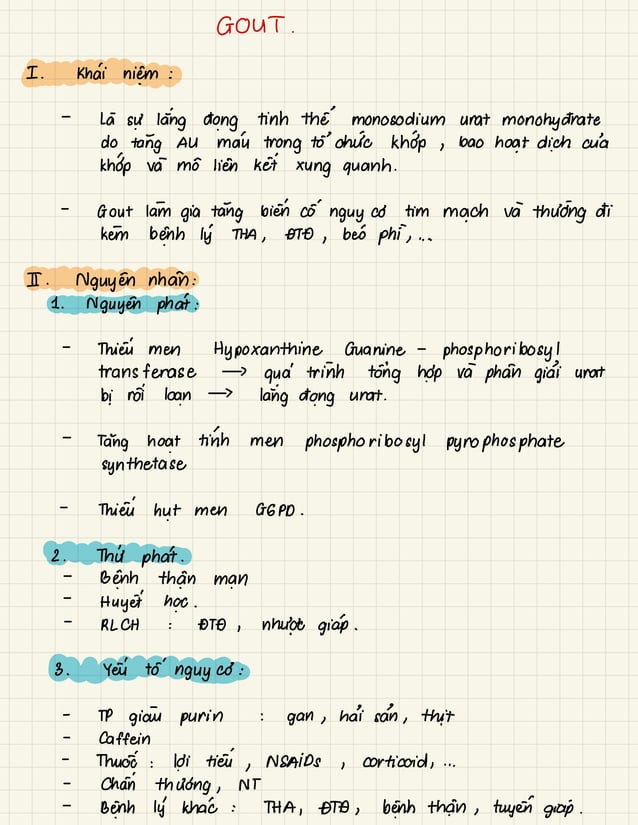 GOUT.
I. Khái niệm :
- Là sự lắng đọng tinh thể monosodium urat monohydrate
do tăng AU máu trong tổ chức khớp, bao hoạt dịch của
khớp và mô liên kết xung quanh.
- Gout làm gia tăng biến cố nguy cơ tim mạch và thường đi
kèm bệnh lý THA, ĐTĐ, béo phì,...
II. Nguyên nhân:
1. Nguyên phát:
- Thiếu men Hypoxanthine Guanine - phosphoribosyl
transferase → quá trình tổng hợp và phân giải urat
bị rối loạn → lắng đọng urat.
- Tăng hoạt tính men phosphoribosyl pyrophosphate
synthetase
- Thiếu hụt men G6PD.
2. Thứ phát.
- Bệnh thận mạn
- Huyết học.
- RLCH : ĐTĐ, nhược giáp.
3. Yếu tố nguy cơ:
- TP giàu purin : gan, hải sản, thịt
- Caffein
- Thuốc : lợi tiểu, NSAiDs, corticoid,...
- Chấn thương, NT
- Bệnh lý khác : THA, ĐTĐ, bệnh thận, tuyến giáp.